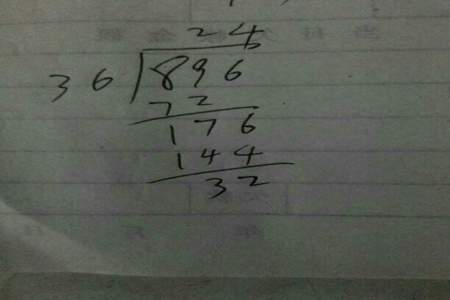 24
36 896
72
176
144
32